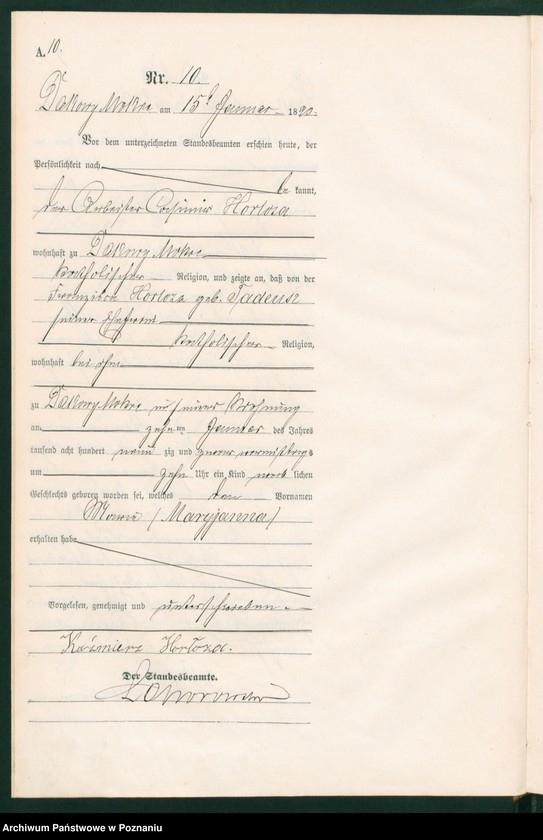 A. 10.
Nr. 10.
Dakowy Mokre am 15t Januar 1890.
Vor dem unterzeichneten Standesbeamten erschien heute, der
Persönlichkeit nach
be kannt,
der Arbeiter Casimir Hortoza
wohnhaft zu Dakowy Mokre
katholischer Religion, und zeigte an, daß von der
Franziska Hortoza geb. Tadeusz
seiner Ehefrau
katholischer Religion,
wohnhaft bei ihm
zu Dakowy Mokre in seiner Wohnung
am zehnten Januar des Jahres
tausend acht hundert neun zig und zwar vormittags
um zehn Uhr ein Kind weib lichen
Geschlechts geboren worden sei, welches den Vornamen
Marie (Maryjanna)
erhalten habe
Vorgelesen, genehmigt und unterschrieben.
Kaźmierz Hortoza.
Der Standesbeamte.
Archiwum Państwowe w Poznaniu